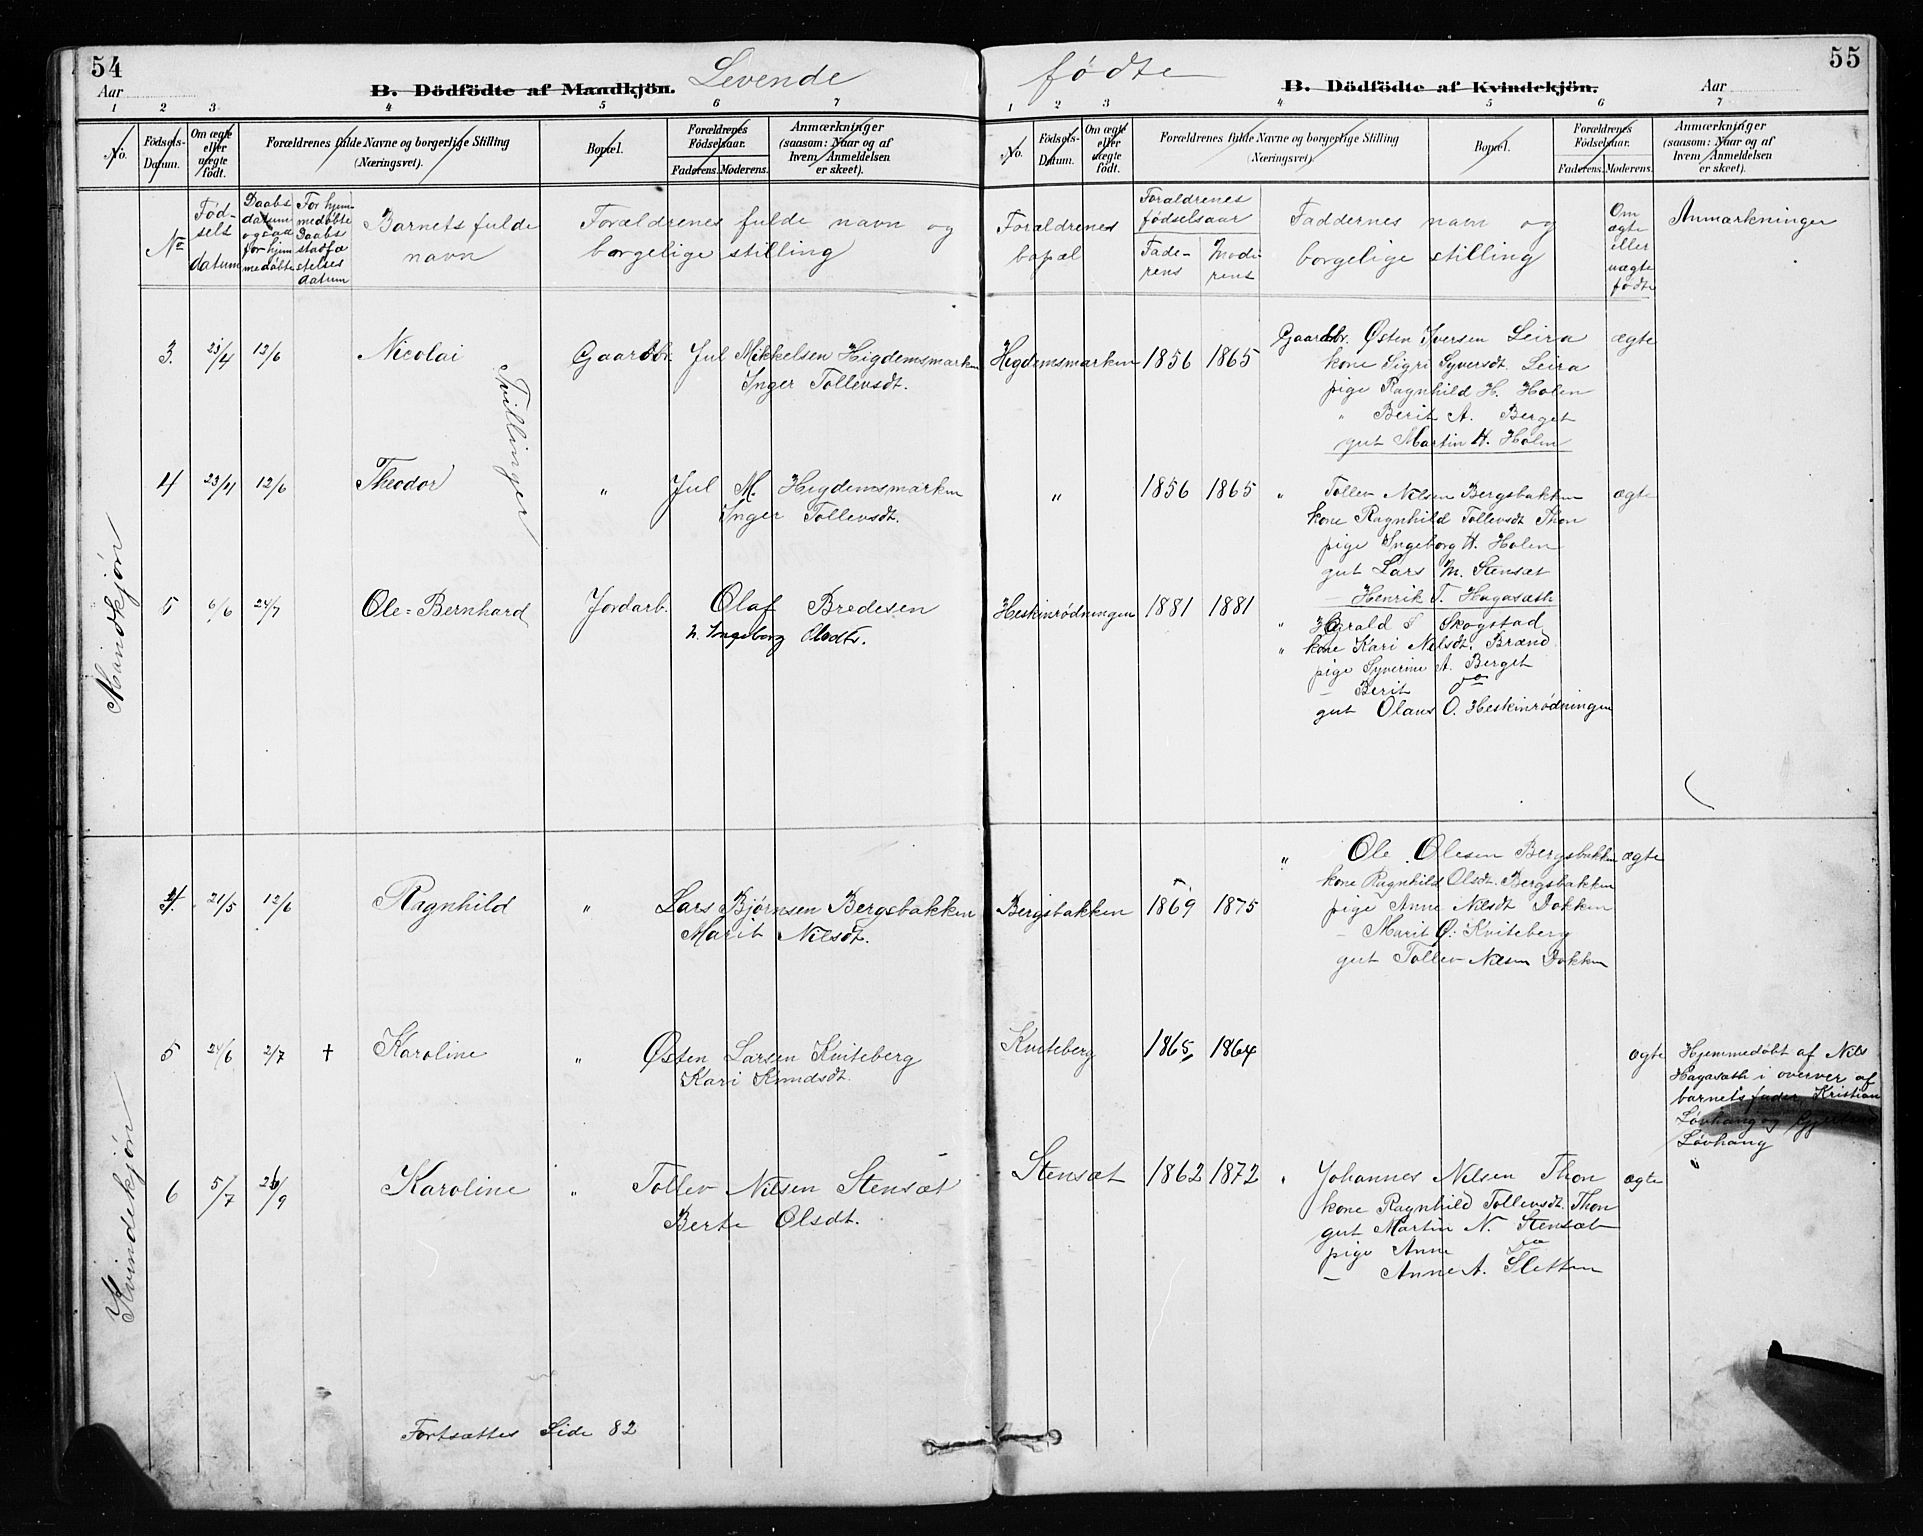 54
55
Levende
fødte
Aar
B. Dödfödte af Mandkjön.
B. Dödfödte af Kvindekjön.
Aar
1 2 3 4 5 6 7
1 2 3 4 5 6 7
No.
Födsels-Datum.
Om ægte eller uægte födt.
Forældrenes fulde Navne og borgerlige Stilling (Næringsvei).
Bopæl.
Forældrenes Födselsaar.
Faderens. Moderens.
Anmærkninger (saasom: Naar og af hvem Anmeldelsen er skeet).
No.
Födsels-Datum.
Om ægte eller uægte födt.
Forældrenes fulde Navne og borgerlige Stilling (Næringsvei).
Bopæl.
Forældrenes Födselsaar.
Faderens. Moderens.
Anmærkninger (saasom: Naar og af hvem Anmeldelsen er skeet).
No
Fødselsdatum
Daabsdatum ogsaa for hjemmedøbte
For hjemmedøbte Daabs stadfæstelses datum
Barnets fulde navn
Forældrenes fulde navn og borgelige stilling
Forældrenes bopæl
Forældrenes fødselsaar
Faderens
Moderens
Faddernes navn og borgelige stilling
Om ægte eller uægte fødte
Anmærkninger
Mandkjøn
Tvillinger
3. 23/4 12/6 Nicolai Gaardbr. Jul Mikkelsen Higdemsmarken
Inger Tollevsdt.
Higdemsmarken 1856 1865 Gaardbr. Østen Iversen Leira ægte
kone Sigri Syversdt. Leira
pige Ragnhild H. Holen
" Berit A. Berget
gut Martin H. Holen
4 23/4 12/6 Theodor " Jul M. Higdemsmarken
Inger Tollevsdt.
" 1856 1865 " Tollev Nilsen Bergsbakken ægte
kone Ragnhild Tollevsdt Thon
pige Ingeborg H. Holen
gut Lars M. Stensæt
– Henrik T. Hagasæth
5 6/6 24/7 Ole-Bernhard Jordarb. Olaf Bredesen
h. Ingeborg Olsdts.
Heskinrødningen 1881 1881 " Harald S Skogstad
" kone Kari Nilsdt. Brænd
pige Syverine A. Berget
– Berit do
gut Olaus O. Heskinrødningen
Kvindekjøn
4. 21/5 12/6 Ragnhild " Lars Bjørnsen Bergsbakken
Marit Nilsdt.
Bergsbakken 1869 1875 " Ole Olesen Bergsbakken ægte
kone Ragnhild Olsdt. Bergsbakken
pige Anne Nilsdt Dokken
– Marit Ø. Kviteberg
gut Tollev Nilsen Dokken
5 24/6 2/7 † Karoline " Østen Larsen Kviteberg
Kari Knudsdt.
Kviteberg 1865 1864 ægte
Hjemmedøbt af Nils
Hagasæth i overvær af
barnets fader, Kristian
Løvhaug og
Løvhaug
6 5/7 /9 Karoline " Tollev Nilsen Stensæt
Berte Olsdt.
Stensæt 1862 1872 " Johannes Nilsen Thon ægte "
kone Ragnhild Tollevsdt. Thon
gut Martin N. Stensæt
pige Anne do
– Anne A. Sletten
Fortsættes Side 82